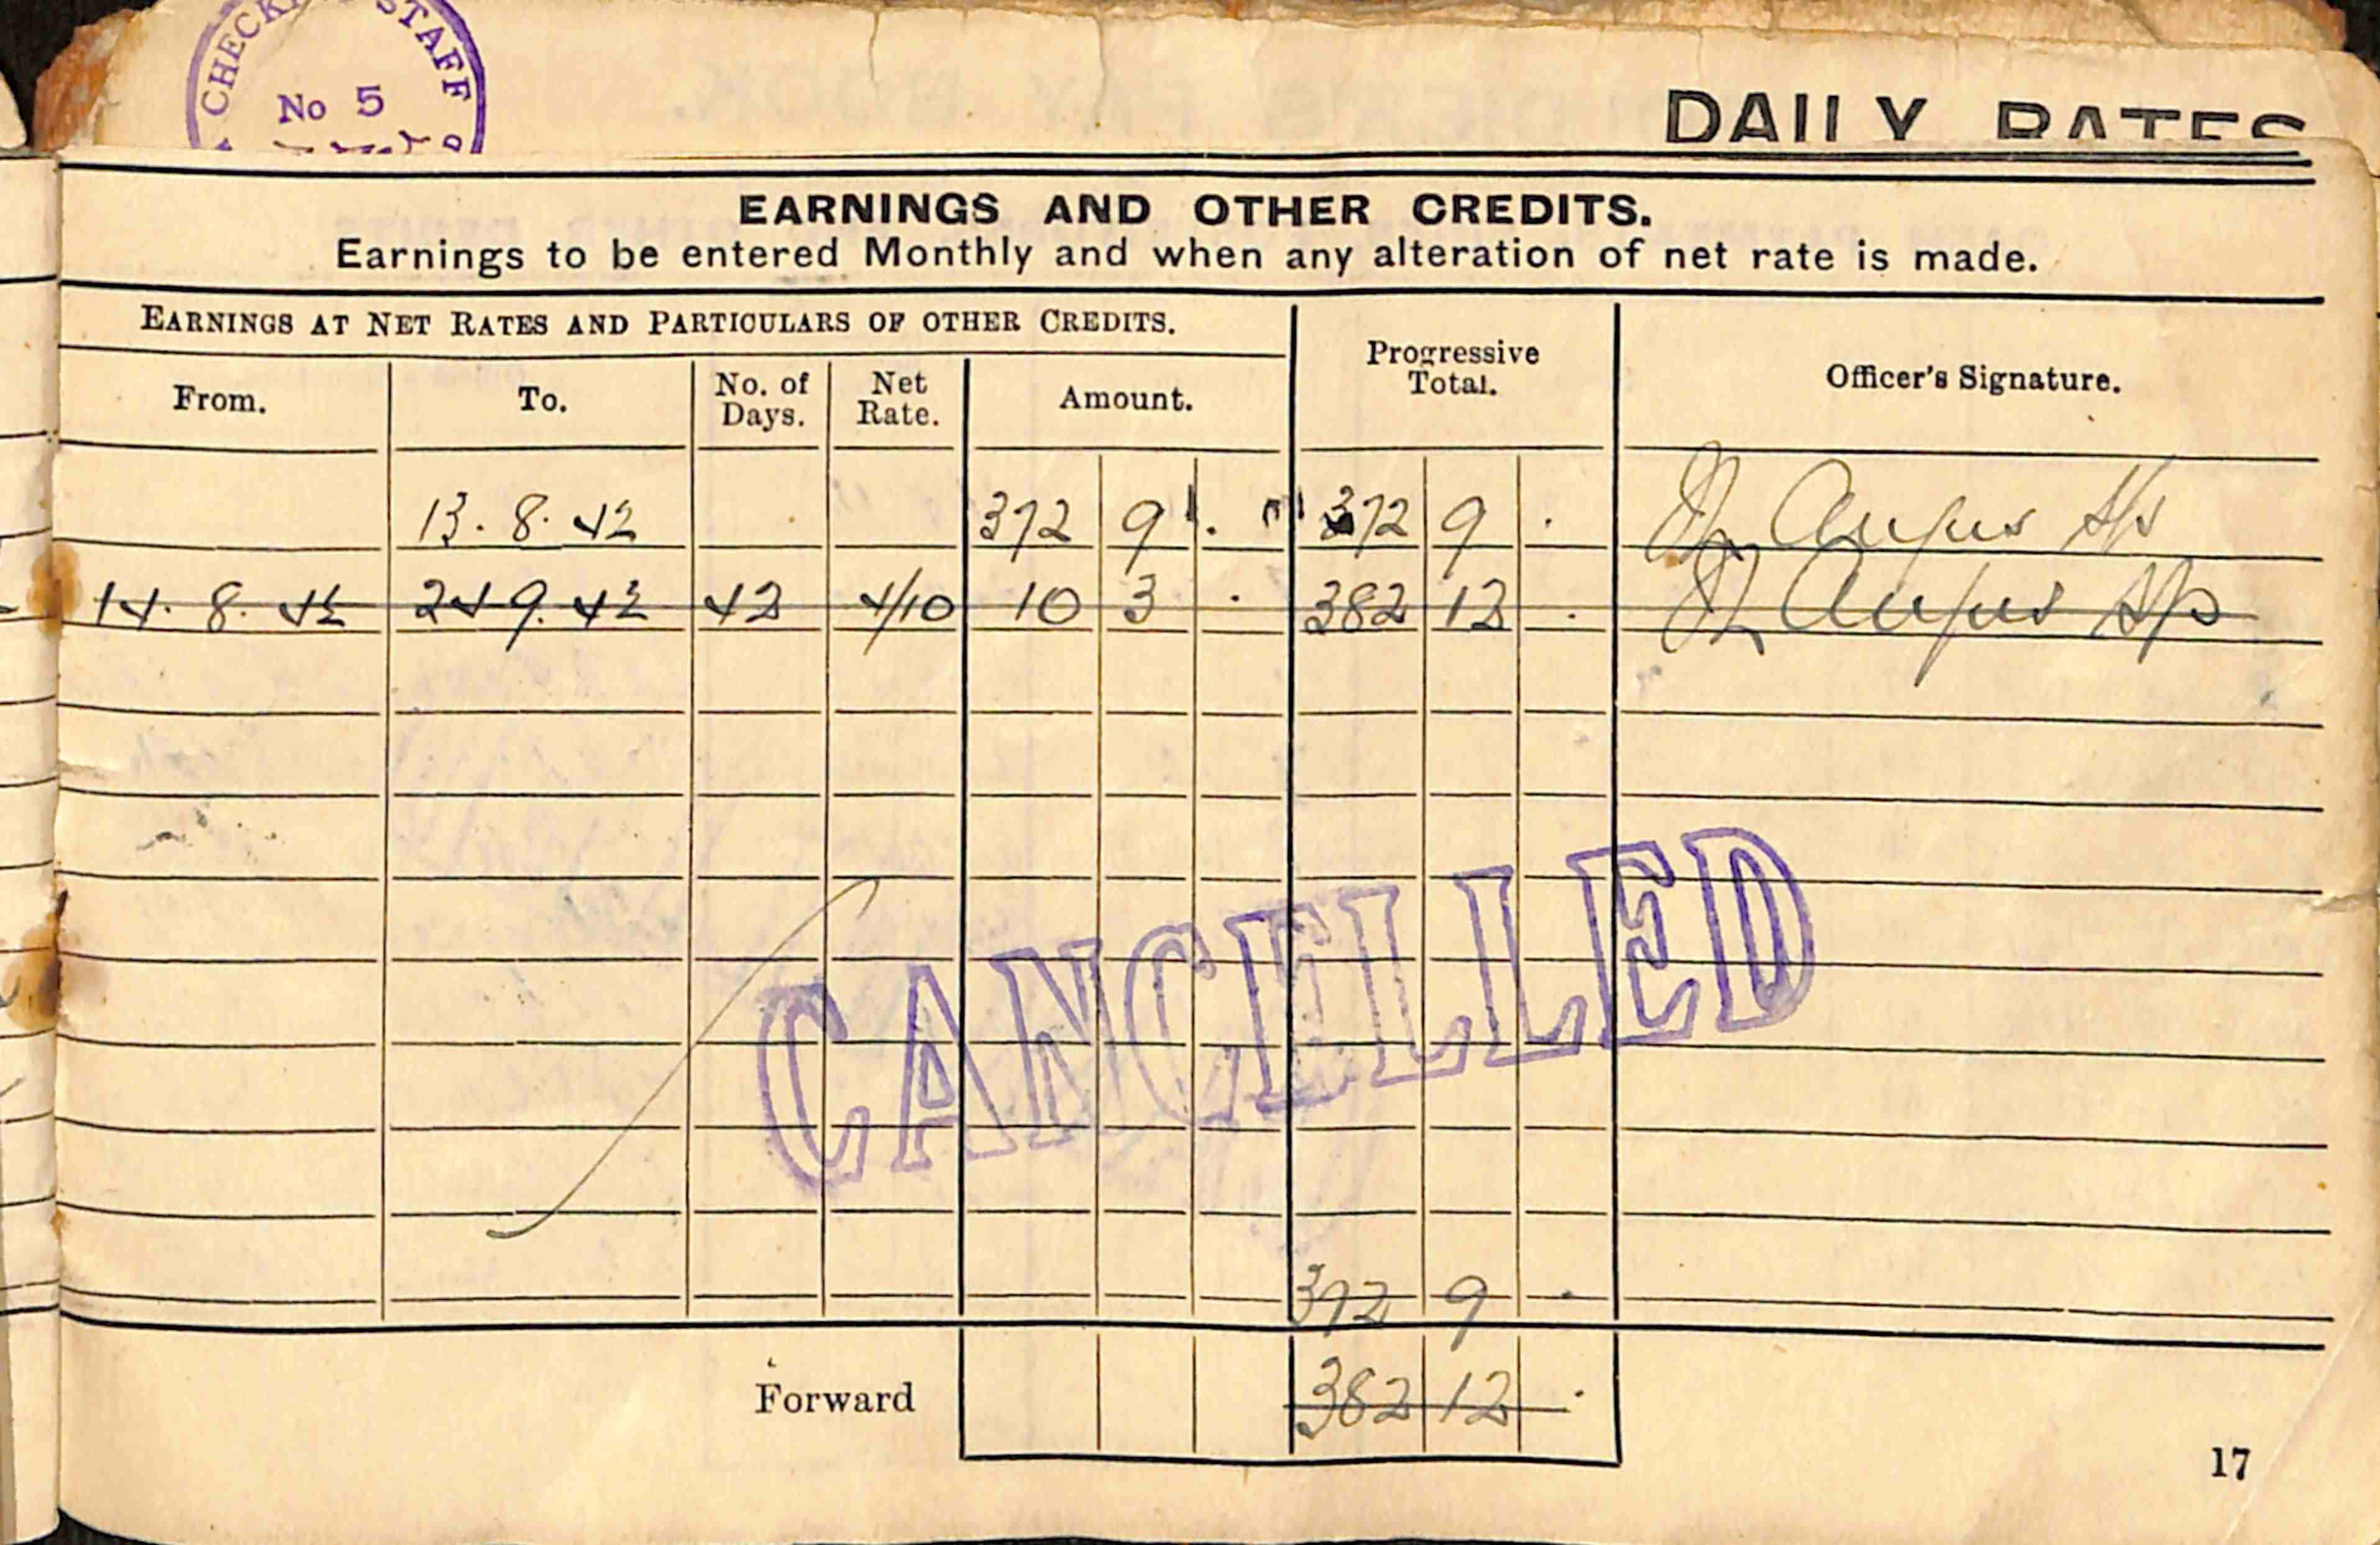 CHECK STAFF
No 5
DAILY RATES
EARNINGS AND OTHER CREDITS.
Earnings to be entered Monthly and when any alteration of net rate is made.
EARNINGS AT NET RATES AND PARTICULARS OF OTHER CREDITS.
Progressive Total.
Officer's Signature.
From.
To.
No. of Days.
Net Rate.
Amount.
13. 8. 42 372 9 . 372 9 . Angus
14. 8. 42 24 9. 42 42 4/10 10 3 . 382 12 . Angus
CANCELLED
372 9 .
Forward 382 12 .
17